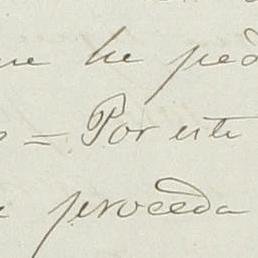 ue he ped
o = Por este
e proceda